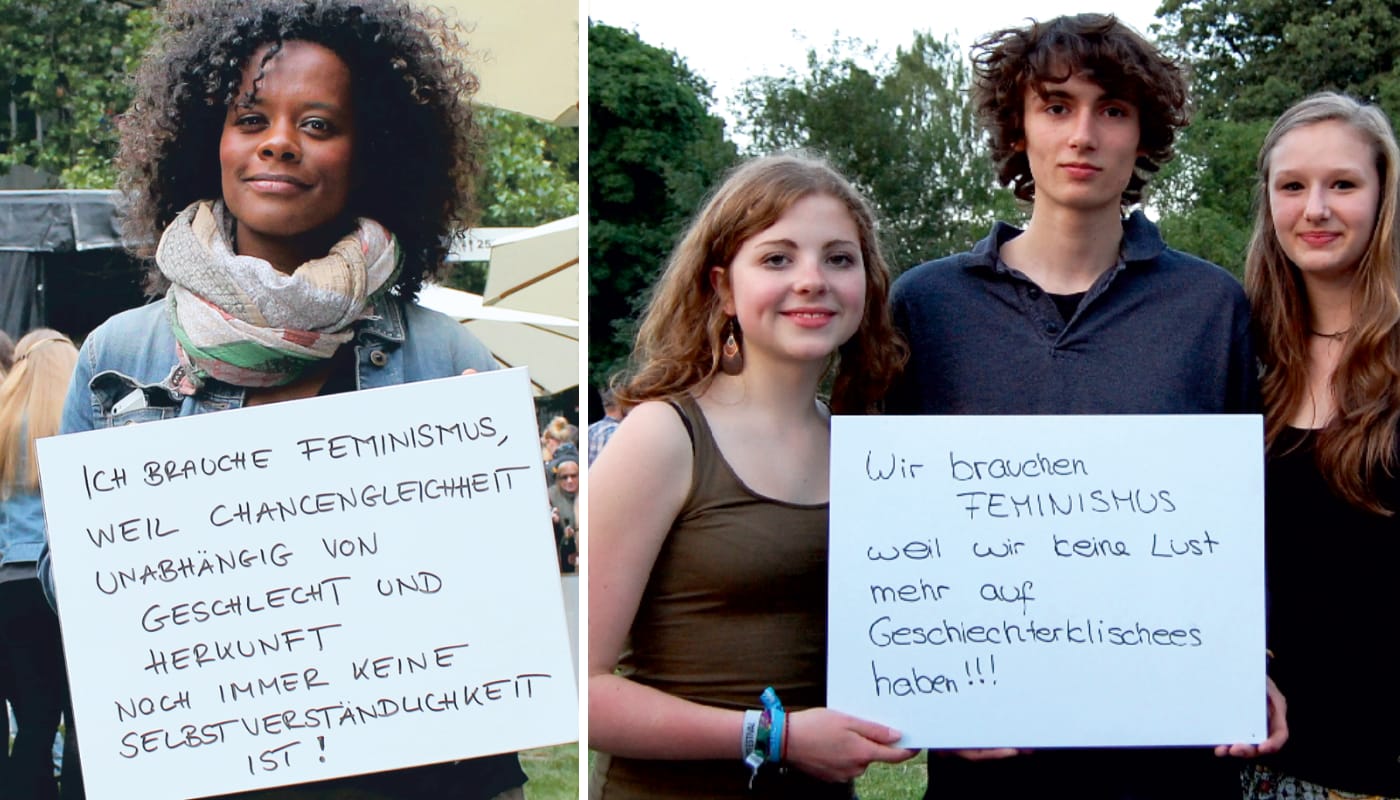 ICH BRAUCHE FEMINISMUS,
WEIL CHANCENGLEICHHEIT
UNABHÄNGIG VON
GESCHLECHT UND
HERKUNFT
NOCH IMMER KEINE
SELBSTVERSTÄNDLICHKEIT
IST!
25
Wir brauchen
FEMINISMUS
weil wir keine Lust
mehr auf
Geschlechterklischees
haben!!!
FESTIVAL